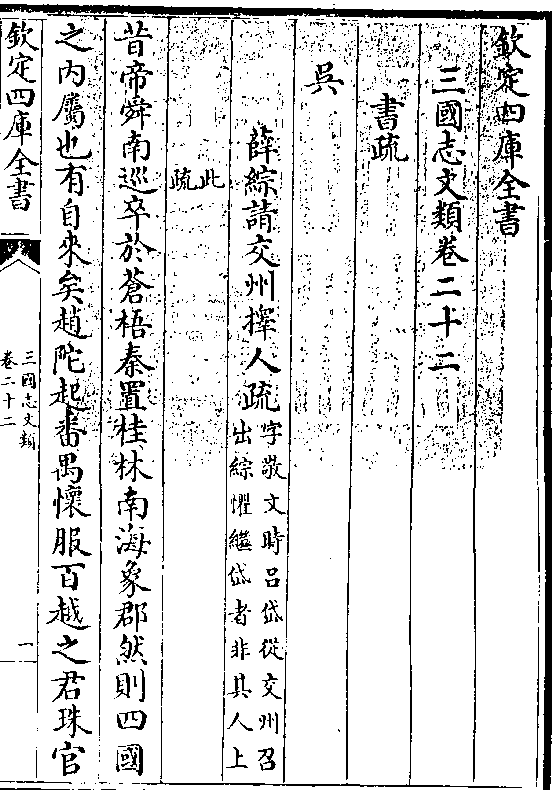 欽定四庫全書
三國志文類卷二十二
書疏
吳
薛綜請交州擇人疏字敬文時吕岱從交州召
出綜懼繼岱者非其人上
此
疏
昔帝舜南巡卒於蒼梧秦置桂林南海象郡然則四國
之内屬也有自來矣趙陀起番禺懷服百越之君珠官
欽定四庫全書
三國志文類
卷二十二
一